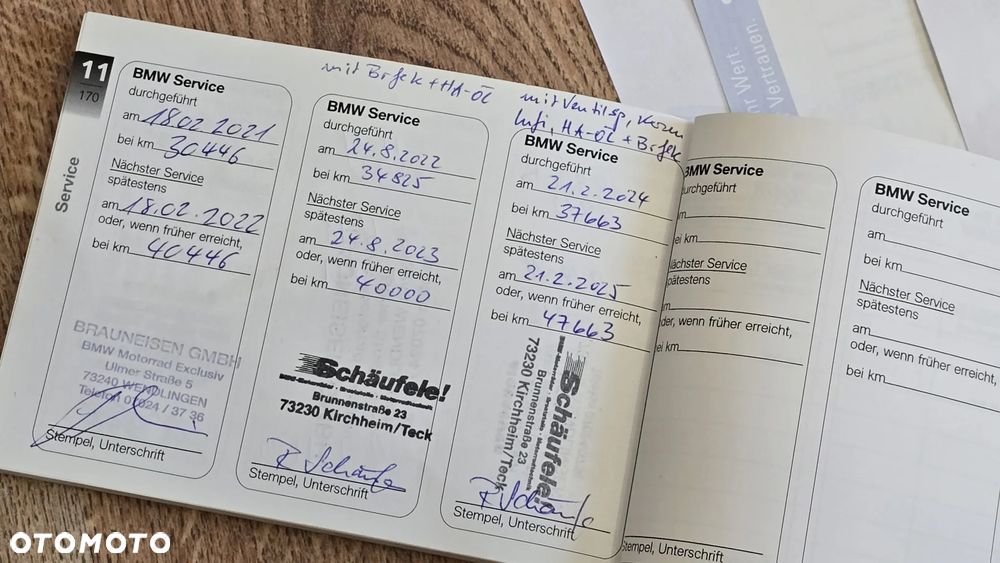 11
170
Service
BMW Service
durchgeführt
am 18.02.2021
bei km 30446
Nächster Service
spätestens
am 18.02.2022
oder, wenn früher erreicht,
bei km 40446
BRAUNEISEN GMBH
BMW Motorrad Exclusiv
Ulmer Straße 5
73240 WENDLINGEN
Telefon 07024 / 37 36
Stempel, Unterschrift
mit Brfek + HA-ÖL
BMW Service
durchgeführt
am 24.8.2022
bei km 34825
Nächster Service
spätestens
am 24.8.2023
oder, wenn früher erreicht,
bei km 40000
Schäufele!
Brunnenstraße 23
73230 Kirchheim/Teck
R Schäufele
Stempel, Unterschrift
mit Ventilsp,
HA-ÖL + Brfek
BMW Service
durchgeführt
am 21.2.2024
bei km 37663
Nächster Service
spätestens
am 21.2.2025
oder, wenn früher erreicht,
bei km 47663
Schäufele!
Brunnenstraße 23
73230 Kirchheim/Teck
R Schäufele
Stempel, Unterschrift
BMW Service
durchgeführt
m
ei km
Nächster Service
pätestens
m
oder, wenn früher erreicht,
ei km
Stempel, Unterschrift
BMW Service
durchgeführt
am
bei km
Nächster Service
spätestens
am
oder, wenn früher erreicht,
bei km
Wert.
Vertrauen.
OTOMOTO